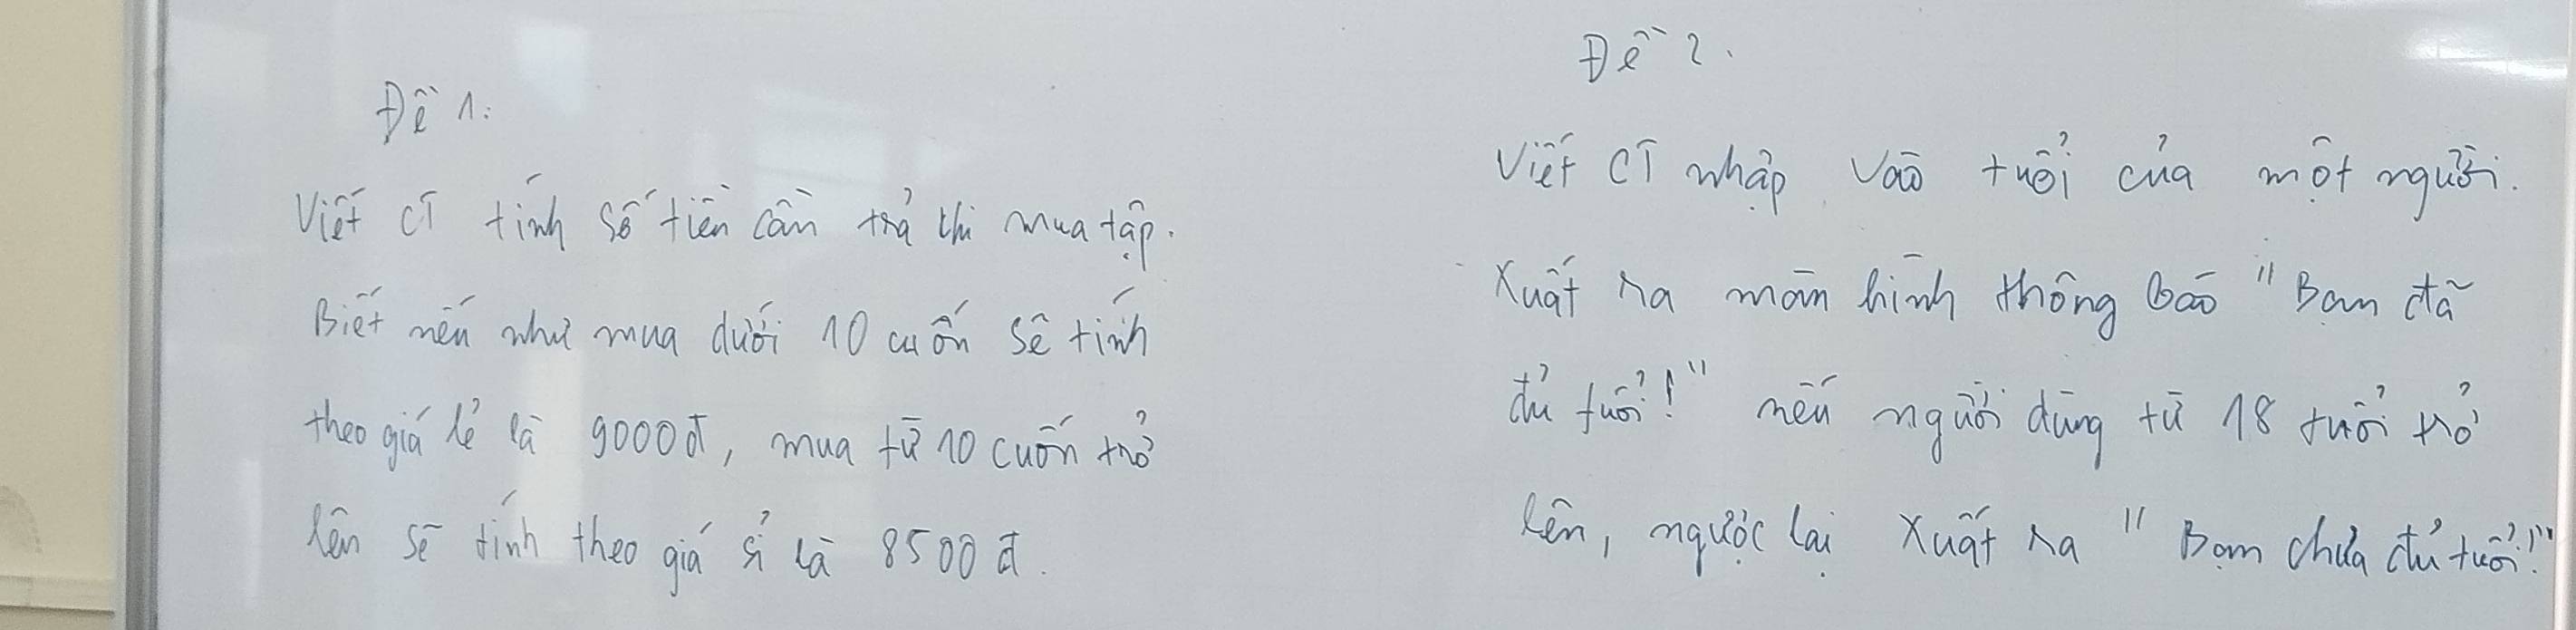 Đề 1:
Viết CT tính số tiền cần trả khi mua tập.
Biết nếu như mua dưới 10 cuốn sẽ tính
theo giá lẻ là 9000đ, mua từ 10 cuốn trở
lên sẽ tính theo giá sỉ là 8500đ.
Đề 2.
Viết CT nhập vào tuổi của một người.
Xuất ra màn hình thông báo "Bạn đã
đủ tuổi!" nếu người dùng từ 18 tuổi trở
lên, ngược lại xuất ra "Bạn chưa đủ tuổi!"